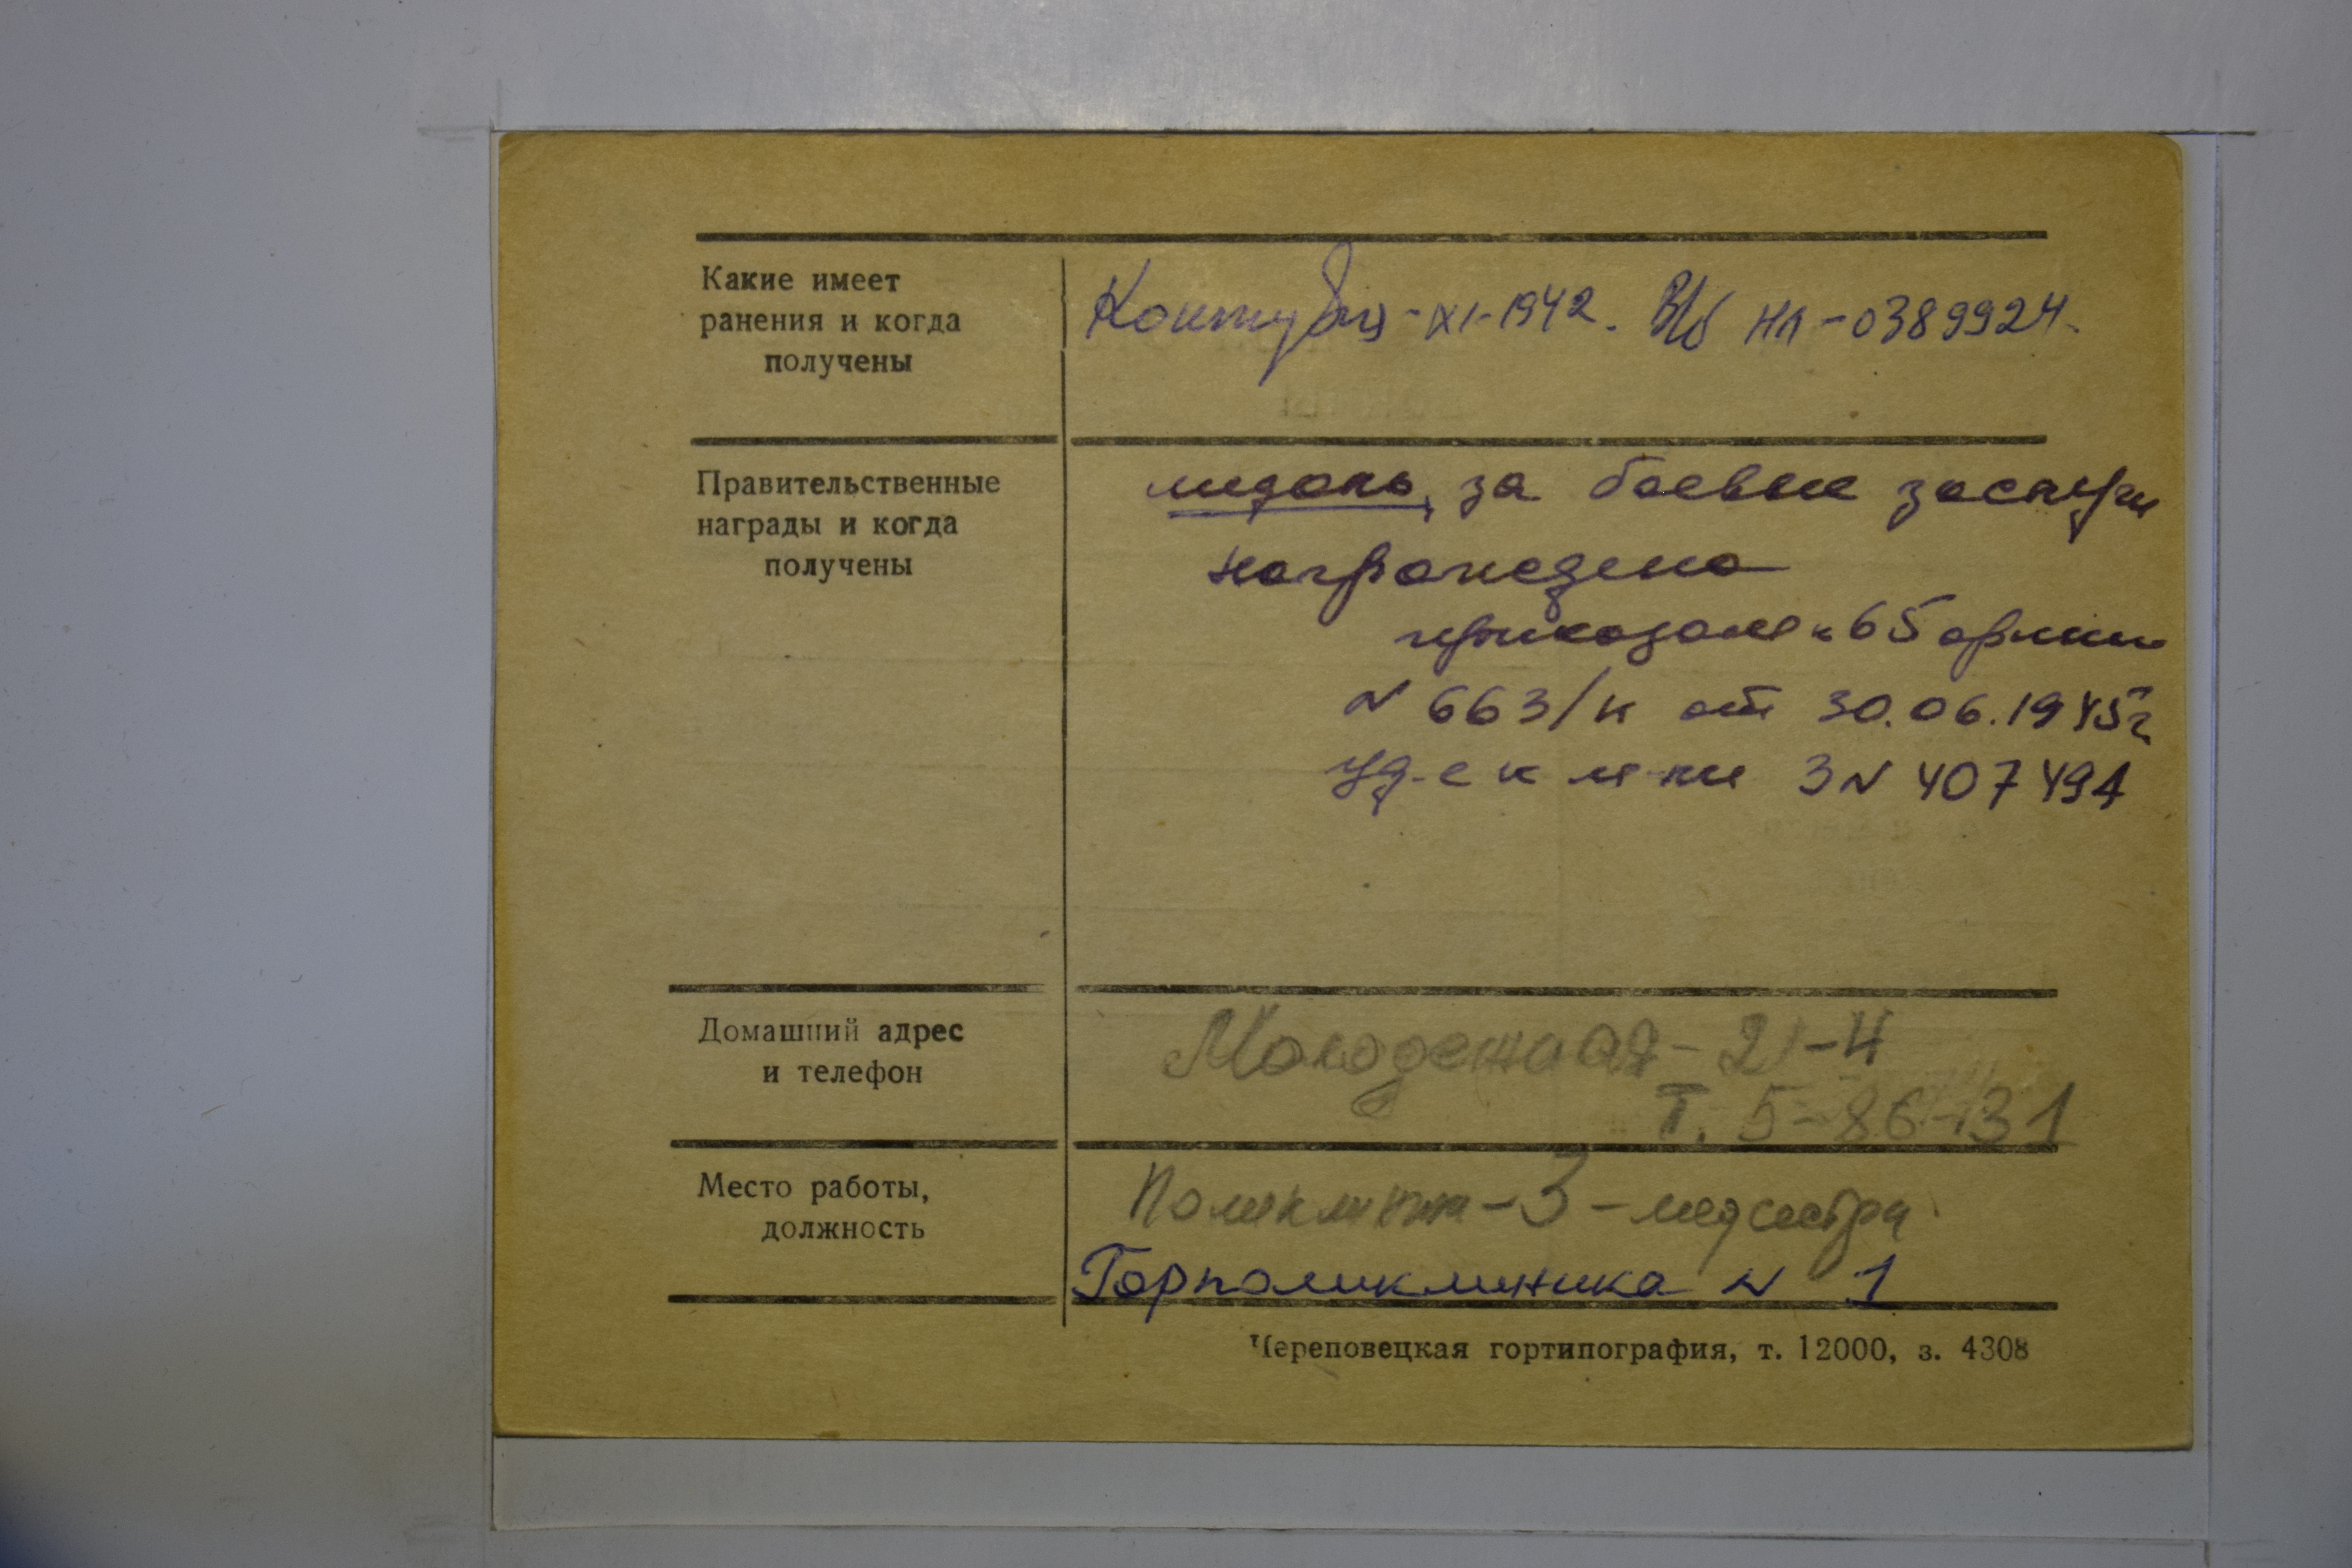 Какие имеет
ранения и когда
получены
Контузия - XI-1942. В/б НЛ-0389924.
Правительственные
награды и когда
получены
медаль, за боевые заслуги
награждена
приказом 65 армии
N 663/н от 30.06.1945г
уд-е к м-ли З N 407494
Домашний адрес
и телефон
Молодежная - 21-4
Т. 5-86-31
Место работы,
должность
Поликлиника - 3 - медсестра
Горполиклиника N 1
Череповецкая гортипография, т. 12000, з. 4308